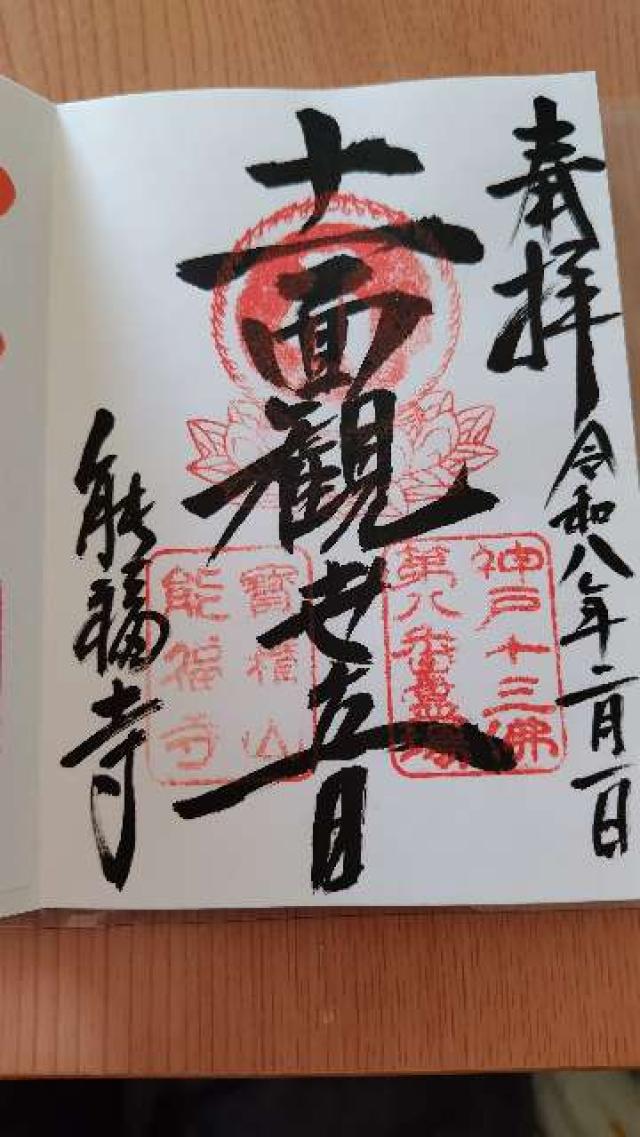 奉拝
令和八年二月一日
神戸十三佛
第八番霊場
十一面観世音
寶積山
能福寺
能福寺